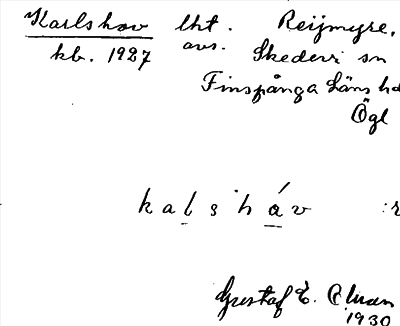 Karlshov lht. Reijmyre,
kb. 1927 avs. Skedevi sn
Finspånga Läns hd
Ögl
kalsháv :r
Gustaf E.
1930